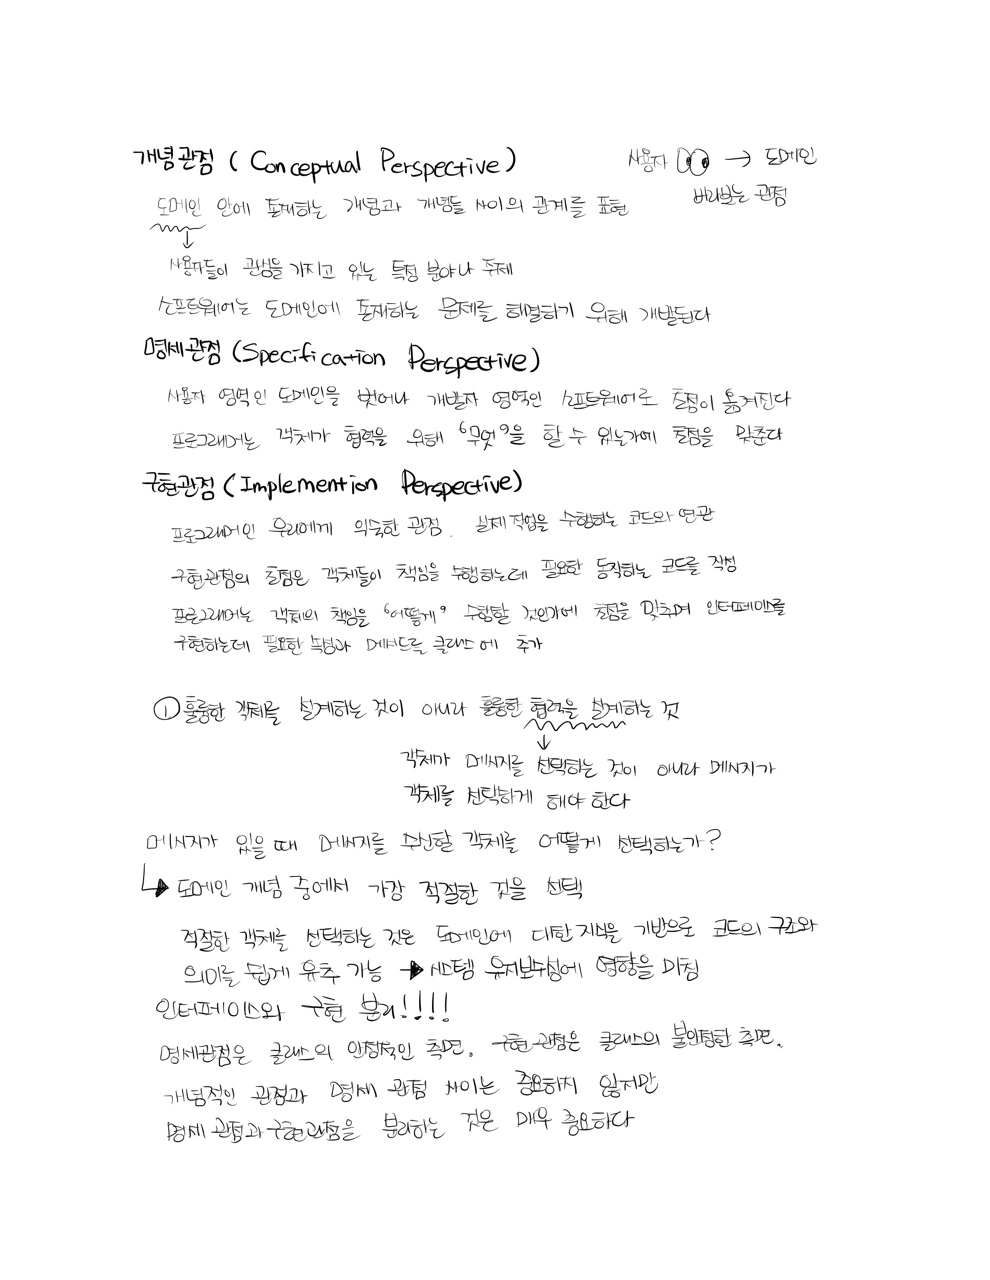 개념관점 (Conceptual Perspective)
사용자 → 도메인
바라보는 관점
도메인 안에 존재하는 개념과 개념들 사이의 관계를 표현
사용자들이 관심을 가지고 있는 특정 분야나 주제
소프트웨어는 도메인에 존재하는 문제를 해결하기 위해 개발된다
명세관점 (Specification Perspective)
사용자 영역인 도메인을 벗어나 개발자 영역인 소프트웨어로 초점이 옮겨진다
프로그래머는 객체가 협력을 위해 '무엇'을 할 수 있는가에 초점을 맞춘다
구현관점 (Implemention Perspective)
프로그래머인 우리에게 익숙한 관점. 실제 작업을 수행하는 코드와 연관
구현관점의 초점은 객체들이 책임을 수행하는데 필요한 동작하는 코드를 작성
프로그래머는 객체의 책임을 '어떻게' 수행할 것인가에 초점을 맞추며 인터페이스를
구현하는데 필요한 속성과 메서드를 클래스에 추가
① 훌륭한 객체를 설계하는 것이 아니라 훌륭한 협력을 설계하는 것
객체가 메시지를 선택하는 것이 아니라 메시지가
객체를 선택하게 해야 한다
메시지가 있을 때 메시지를 수신할 객체를 어떻게 선택하는가?
↳ 도메인 개념 중에서 가장 적절한 것을 선택
적절한 객체를 선택하는 것은 도메인에 대한 지식을 기반으로 코드의 구조와
의미를 쉽게 유추 가능 → 시스템 유지보수성에 영향을 미침
인터페이스와 구현 분리!!!!
명세관점은 클래스의 안정적인 측면. 구현 관점은 클래스의 불안정한 측면.
개념적인 관점과 명세 관점 사이는 중요하지 않지만
명세 관점과 구현관점을 분리하는 것은 매우 중요하다